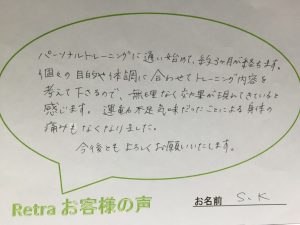 パーソナルトレーニングに通い始めて、約3ヶ月が経ちます。
個々の目的や体調に合わせてトレーニング内容を
考えて下さるので、無理なく効果が現れてきていると
感じます。運動不足気味だったことによる身体の
痛みもなくなりました。
今後ともよろしくお願いいたします。
Retra お客様の声
お名前 S.K